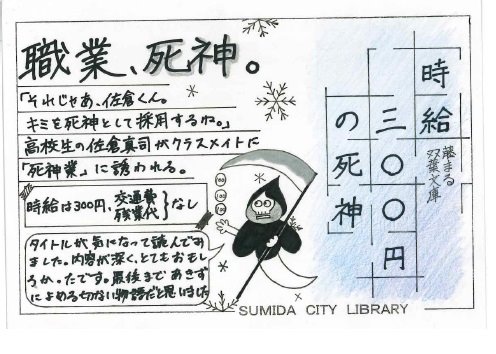 職業、死神。
「それじゃあ、佐倉くん。
キミを死神として採用するね。」
高校生の佐倉真司がクラスメイトに
「死神業」に誘われる。
時給は300円、交通費 残業代}なし
タイトルが気になって読んでみ
ました。内容が深く、とてもおもし
ろかったです。最後まであきず
によめる切ない物語だと思いました
時給
三〇〇円
の死神」
藤まる
双葉文庫
300
300
300
SUMIDA CITY LIBRARY